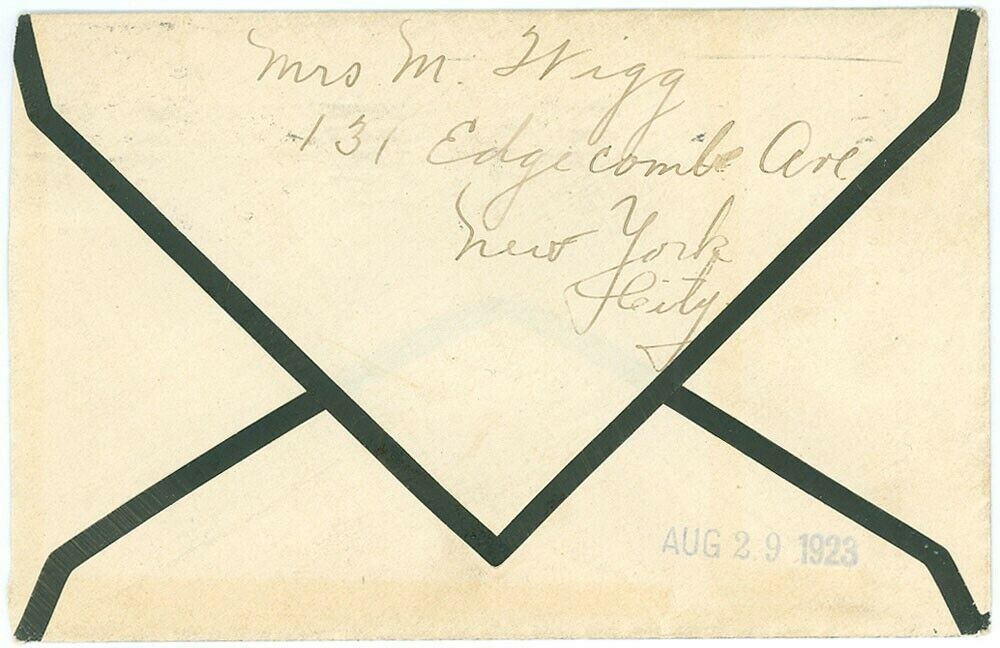 Mrs M. Wigg
131 Edgecombe Ave
New York
City
AUG 29 1923